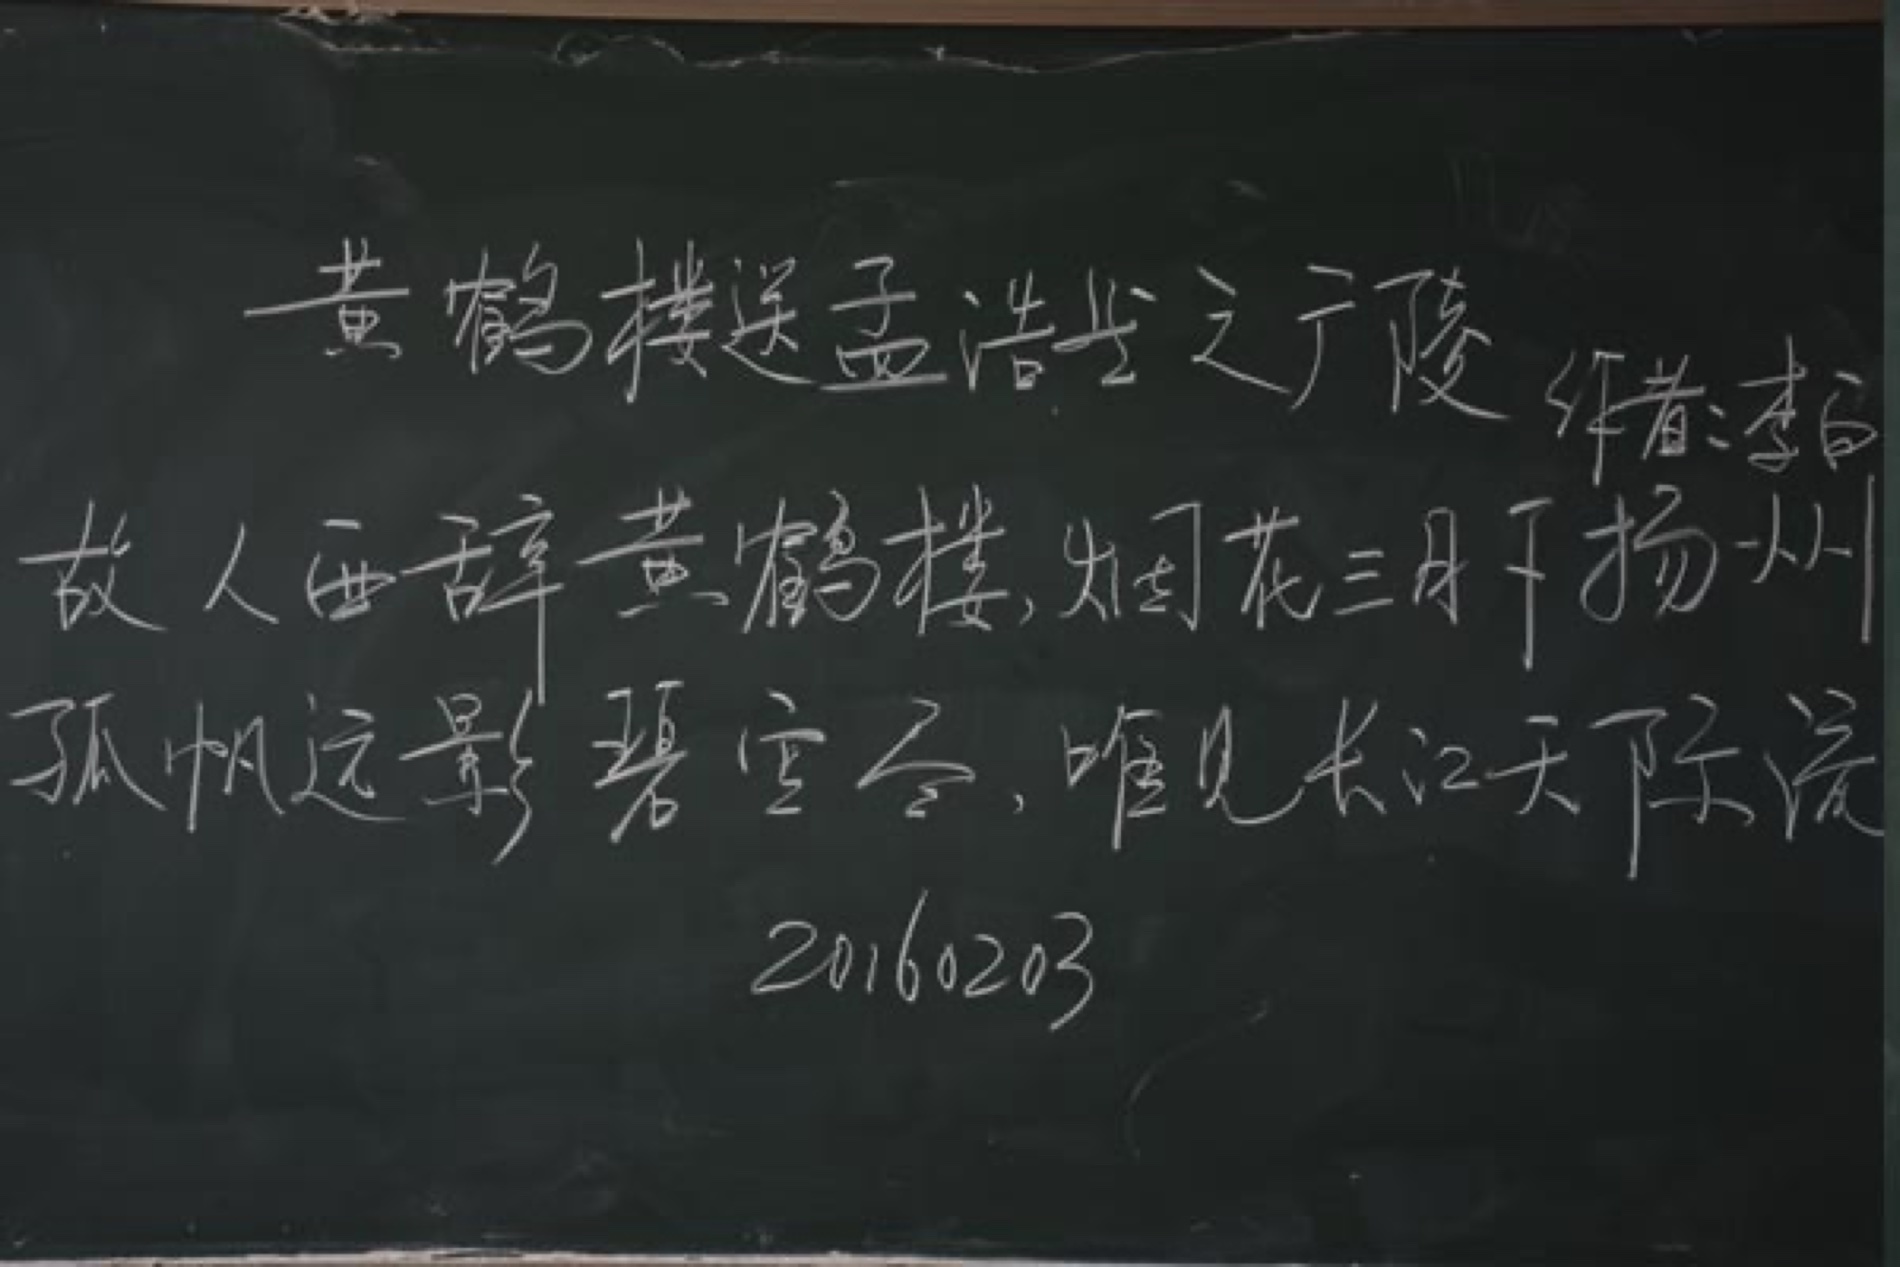 黄鹤楼送孟浩然之广陵
作者:李白
故人西辞黄鹤楼,烟花三月下扬州
孤帆远影碧空尽,唯见长江天际流
20160203